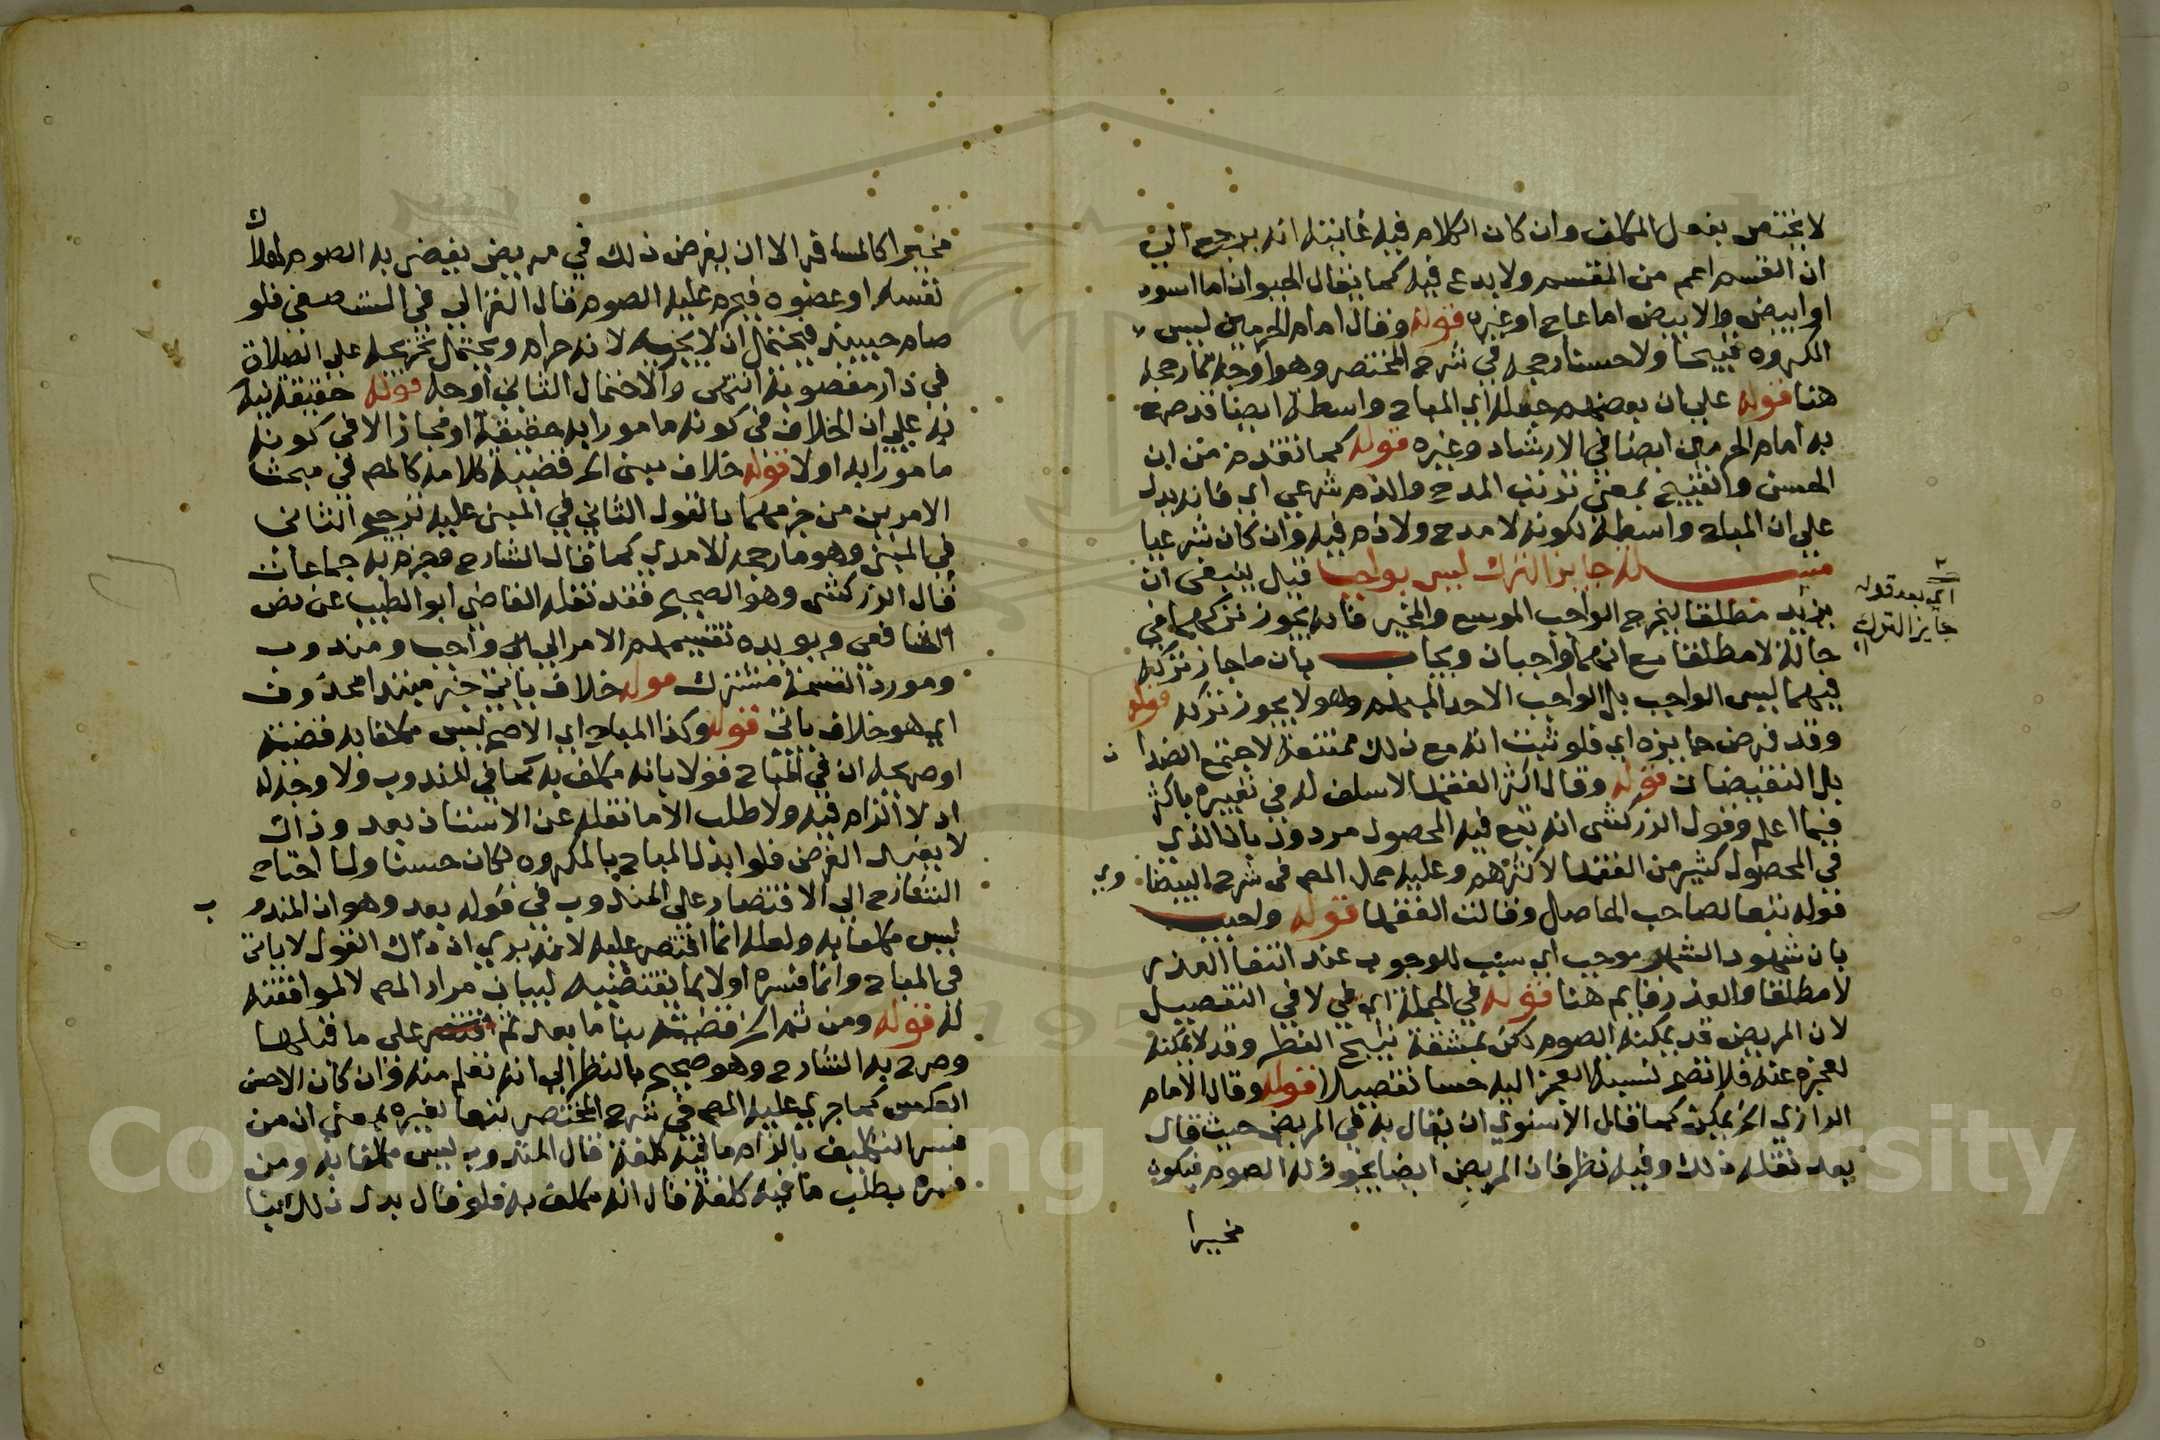 لا يختص بفعل المكلف وان كان الكلام فيه غايته انه يرجع الى
ان القسم اعم من المقسم ولا بدع فيه كما يقال الحيوان اما اسود
او ابيض والابيض اما عاج او غيره قوله وقال امام الحرمين ليس
المكروه قبيحا ولا حسنا رجحه في شرح المختصر وهو اوجه مما رجحه
هنا قوله على ان بعضهم جعله اي المباح واسطة ايضا قد صرح
به امام الحرمين ايضا في الارشاد وغيره قوله كما تقدم من ان
الحسن والقبيح بمعنى ترتب المدح والذم شرعي اي فانه يدل
على ان المباح واسطة لكونه لا مدح ولا ذم فيه وان كان شرعيا
مسئلة جايز الترك ليس بواجب قيل ينبغي ان
يزيد مطلقا ليخرج الواجب الموسع والمخير فانه يجوز تركهما في
حالة لا مطلقا مع انهما واجبان ويجاب بان ما جاز تركه
فيهما ليس الواجب بل الواجب الاحد المبهم وهو لا يجوز تركه قوله
وقد فرض جايزه اي فلو ثبت انه مع ذلك ممتنعة لاجتمع الضدا ن
بل النقيضان قوله وقال اكثر الفقها لا سلف له في تعبيره باكثر
فيما اعلم وقول الزركشي انه تبع فيه المحصول مردود بان الذي
في المحصول كثير من الفقها لا اكثرهم وعليه حمل المص في شرح البيضا وي
قوله تبعا لصاحب الحاصل وقالت الفقها قوله واجيب
بان شهود الشهر موجب اي سبب للوجوب عند انتفا العذر
لا مطلقا والعذر قايم هنا قوله في الجملة اي لا في التفصيل
لان المريض قد يمكنه الصوم لكن بمشقة تبيح الفطر وقد لا يمكنه
لعجزه عنه فلا تضم نسبة العجز اليه حسا تفصيلا قوله وقال الامام
الرازي الخ يمكن كما قال الاسنوي ان يقال به في المريض حيث قال
بعد نقله ذلك وفيه نظر فان المريض ايضا يجوز له الصوم فيكون
مخيرا
اي بعد قوله
جايز الترك
مخيرا كالمسافر الا ان يفرض ذلك في مريض يفيض به الصوم لهلاك
نفسه او عضوه فيحرم عليه الصوم قال الغزالي في المستصفى فلو
صام حينئذ فيحتمل ان لا يجزيه لانه حرام ويحتمل تخريجه على الصلاة
في دار مغصوبة انتهى والاحتمال الثاني اوجه قوله حقيقة نبه
به على ان الخلاف في كونه مامورا به حقيقة او مجاز الا في كونه
مامورا به اولا قوله خلاف مبني الخ قضية كلامه كالمص في مبحث
الامر من جزمهما بالقول الثاني في المبني عليه ترجيح الثاني
في المبني وهو ما رجحه الامدي كما قال الشارح وجزم به جماعات
قال الزركشي وهو الصحيح فقد نقله القاضي ابو الطيب عن نص
الشافعي ويويده تقسيمهم الامر الى واجب ومندوب
ومورد القسمة مشترك قوله خلاف ياتي خبر مبتدا محذوف
اي هو خلاف ياتي قوله وكذا المباح اي الاصح ليس مكلفا به قضيته
او صريحه ان في المباح قولا بانه مكلف به كما في المندوب ولا وجه له
اذ لا الزام فيه ولا طلب الا ما نقله عن الاستاذ بعد وذاك
لا يفيد الغرض فلو ابدل المباح بالمكروه لكان حسنا ولما احتاج
الشارح الى الاقتصار على المندوب في قوله بعد وهو ان المندو ب
ليس مكلفا به ولعله انما اقتصر عليه لانه يدري ان ذاك القول لا ياتي
في المباح وانما فسره اولا بما يقتضيه لبيان مراد المص لا لموافقته
له قوله ومن ثم الخ قضيته بنا ما بعد ثم على ما قبلها
وصرح به الشارح وهو صحيح بالنظر الى انه تعلم منه وان كان الاحسن
العكس كما جرى عليه المص في شرح المختصر تبعا لغيره بمعنى ان من
فسر التكليف بالزام ما فيه كلفة قال المندوب ليس مكلفا به ومن
فسره بطلب ما فيه كلفة قال انه مكلف به فلو قال بدل ذلك بنا